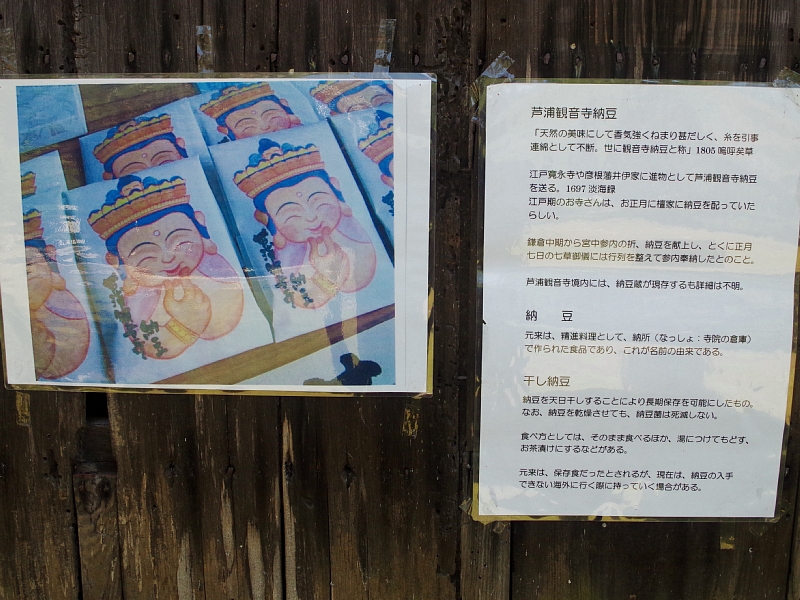 芦浦観音寺納豆
「天然の美味にして香気強くねまり甚だしく、糸を引事
連綿として不断。世に観音寺納豆と称」1805 嗚呼矣草
江戸寛永寺や彦根藩井伊家に進物として芦浦観音寺納豆
を送る。1697 淡海録
江戸期のお寺さんは、お正月に檀家に納豆を配っていた
らしい。
鎌倉中期から宮中参内の折、納豆を献上し、とくに正月
七日の七草御儀には行列を整えて参内奉納したとのこと。
芦浦観音寺境内には、納豆蔵が現存するも詳細は不明。
納 豆
元来は、精進料理として、納所（なっしょ：寺院の倉庫）
で作られた食品であり、これが名前の由来である。
干し納豆
納豆を天日干しすることにより長期保存を可能にしたもの。
なお、納豆を乾燥させても、納豆菌は死滅しない。
食べ方としては、そのまま食べるほか、湯につけてもどす、
お茶漬けにするなどがある。
元来は、保存食だったとされるが、現在は、納豆の入手
できない海外に行く際に持っていく場合がある。